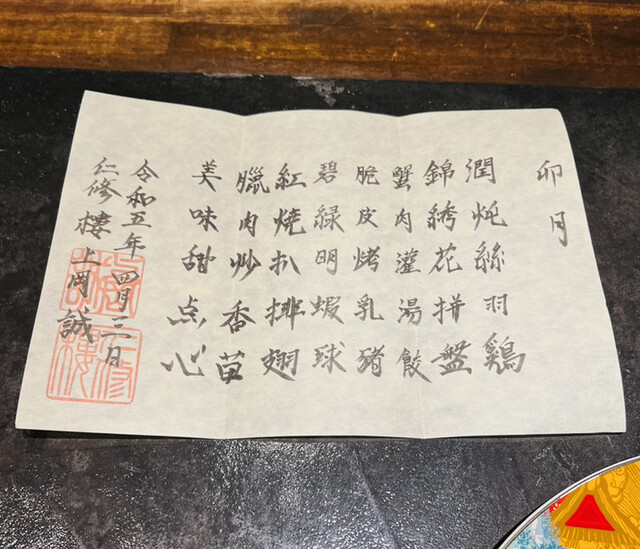 卯月
潤炖絲羽鷄
錦綉花拼盤
蟹肉灌湯餃
脆皮烤乳猪
碧緑明蝦球
紅焼扒排翅
臘肉炒香苗
美味甜点心
令和五年四月三日
仁修樓上岡誠